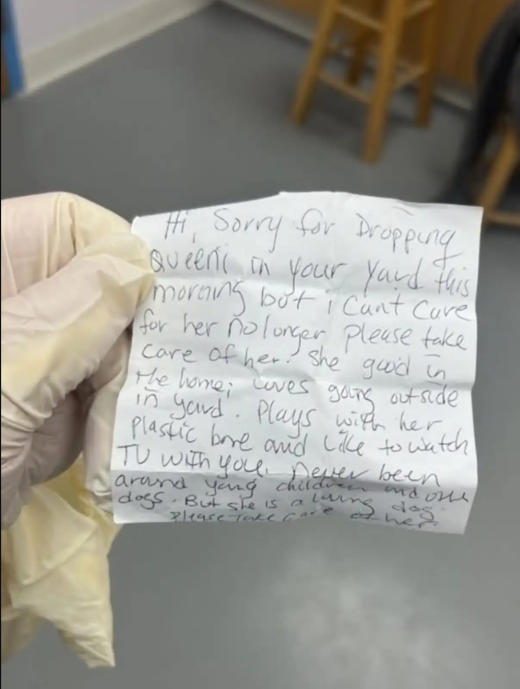 Hi, Sorry for Dropping
Queeni in your yard this
morning bot i Cant Care
for her no longer please take
care of her. She good in
the home, loves going outside
in yard. Plays with her
plastic bone and like to watch
TV with you. Never been
around young children and
dogs. But she is a loving dog.
Please Take care of her